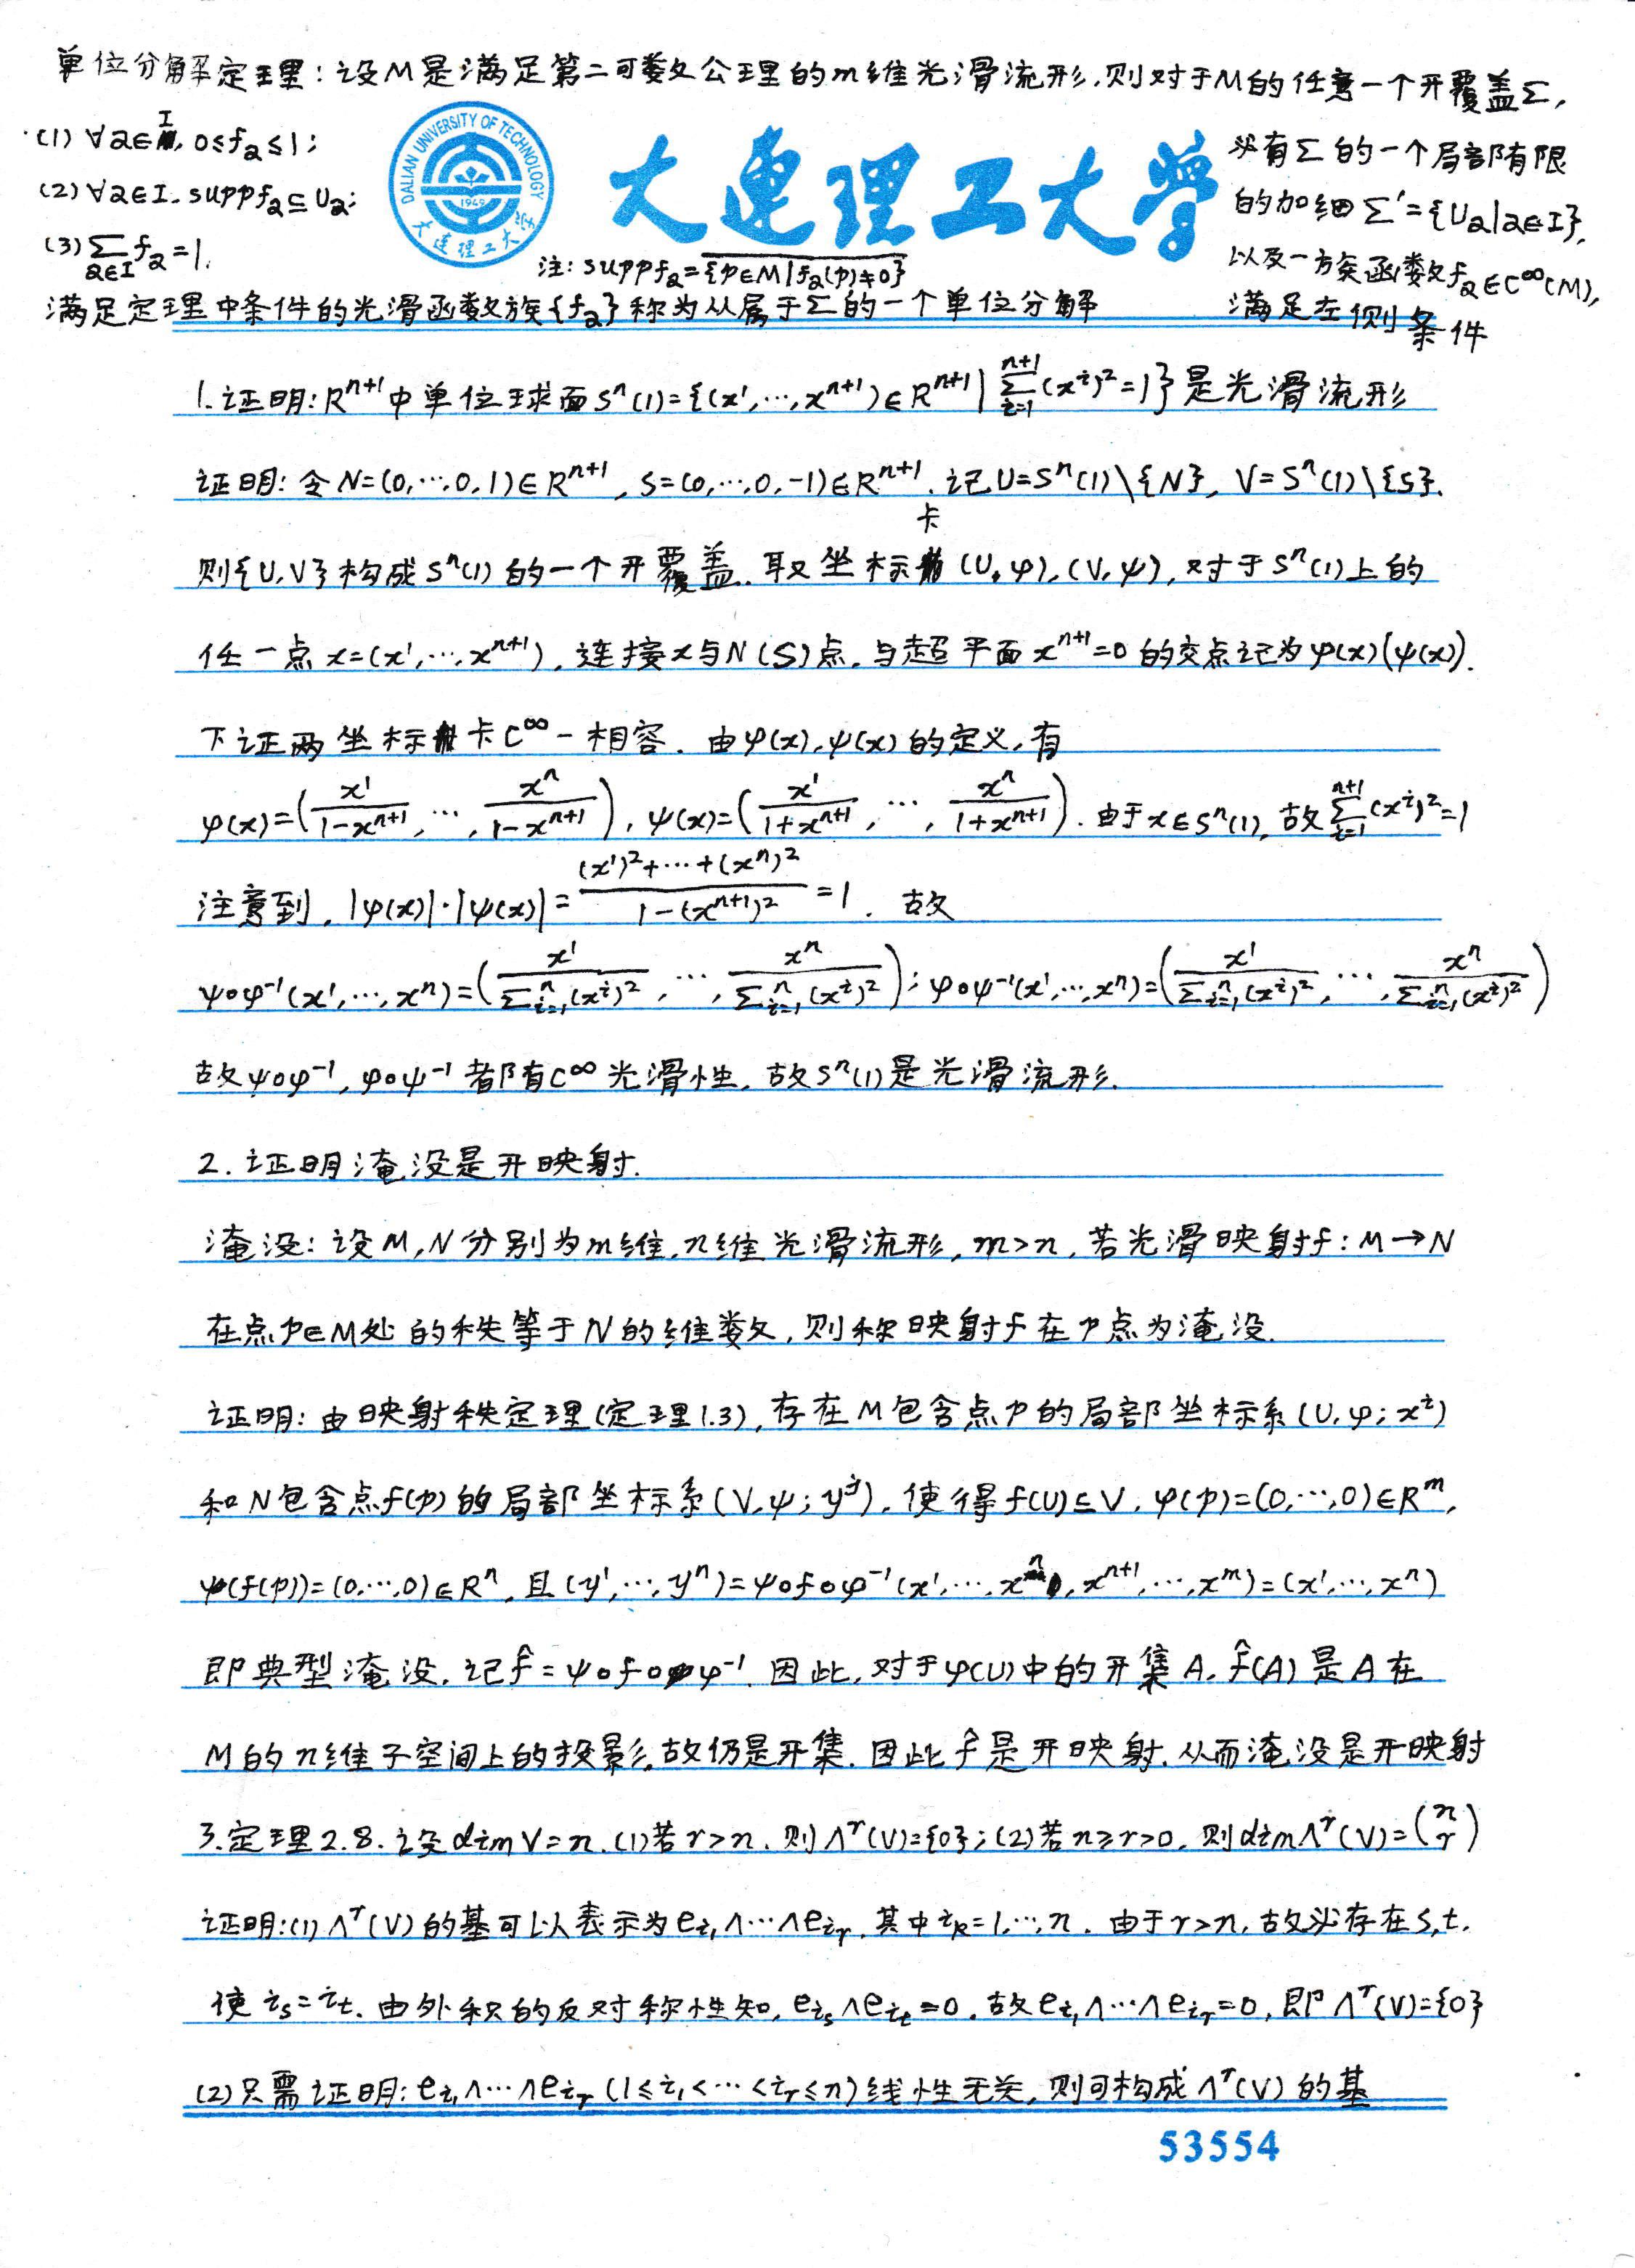 单位分解定理：设M是满足第二可数公理的m维光滑流形，则对于M的任意一个开覆盖Σ，
必有Σ的一个局部有限
的加细Σ'={U_α|α∈I}，
以及一族函数f_α∈C^∞(M)，
满足左侧条件
(1) ∀α∈I, 0≤f_α≤1；
(2) ∀α∈I. supp f_α⊆U_α；
(3) ∑_{α∈I} f_α=1.
DALIAN UNIVERSITY OF TECHNOLOGY
1949
大连理工大学
大连理工大学
注：supp f_α=\overline{{p∈M|f_α(p)≠0}}
满足定理中条件的光滑函数族{f_α}称为从属于Σ的一个单位分解
1.证明：R^{n+1}中单位球面S^n(1)={(x^1,…,x^{n+1})∈R^{n+1}|∑_{i=1}^{n+1}(x^i)^2=1}是光滑流形
证明：令N=(0,…,0,1)∈R^{n+1}, S=(0,…,0,-1)∈R^{n+1}. 记U=S^n(1)\{N}, V=S^n(1)\{S}.
则{U,V}构成S^n(1)的一个开覆盖. 取坐标卡(U,φ),(V,ψ), 对于S^n(1)上的
任一点x=(x^1,…,x^{n+1}), 连接x与N(S)点, 与超平面x^{n+1}=0的交点记为φ(x)(ψ(x)).
下证两坐标卡C^∞-相容. 由φ(x),ψ(x)的定义, 有
φ(x)=(\frac{x^1}{1-x^{n+1}},…,\frac{x^n}{1-x^{n+1}}), ψ(x)=(\frac{x^1}{1+x^{n+1}},…,\frac{x^n}{1+x^{n+1}}). 由于x∈S^n(1), 故∑_{i=1}^{n+1}(x^i)^2=1
注意到, |φ(x)|·|ψ(x)|=\frac{(x^1)^2+…+(x^n)^2}{1-(x^{n+1})^2}=1. 故
ψ∘φ^{-1}(x^1,…,x^n)=(\frac{x^1}{∑_{i=1}^n(x^i)^2},…,\frac{x^n}{∑_{i=1}^n(x^i)^2}); φ∘ψ^{-1}(x^1,…,x^n)=(\frac{x^1}{∑_{i=1}^n(x^i)^2},…,\frac{x^n}{∑_{i=1}^n(x^i)^2})
故ψ∘φ^{-1}, φ∘ψ^{-1}都有C^∞光滑性, 故S^n(1)是光滑流形.
2.证明淹没是开映射.
淹没：设M,N分别为m维,n维光滑流形, m>n, 若光滑映射f:M→N
在点p∈M处的秩等于N的维数, 则称映射f在p点为淹没.
证明：由映射秩定理(定理1.3), 存在M包含点p的局部坐标系(U,φ;x^i)
和N包含点f(p)的局部坐标系(V,ψ;y^j), 使得f(U)⊆V, φ(p)=(0,…,0)∈R^m,
ψ(f(p))=(0,…,0)∈R^n, 且(y^1,…,y^n)=ψ∘f∘φ^{-1}(x^1,…,x^n,x^{n+1},…,x^m)=(x^1,…,x^n)
即典型淹没. 记\hat{f}=ψ∘f∘φ^{-1}. 因此, 对于φ(U)中的开集A, \hat{f}(A)是A在
M的n维子空间上的投影, 故仍是开集. 因此\hat{f}是开映射. 从而淹没是开映射
3.定理2.8. 设dim V=n. (1)若r>n, 则∧^r(V)={0}; (2)若n≥r>0, 则dim∧^r(V)=\binom{n}{r}
证明：(1) ∧^r(V)的基可以表示为e_{i_1}∧…∧e_{i_r}, 其中i_k=1,…,n. 由于r>n, 故必存在s,t,
使i_s=i_t. 由外积的反对称性知, e_{i_s}∧e_{i_t}=0. 故e_{i_1}∧…∧e_{i_r}=0, 即∧^r(V)={0}
(2)只需证明：e_{i_1}∧…∧e_{i_r}(1≤i_1<…<i_r≤n)线性无关, 则可构成∧^r(V)的基
53554